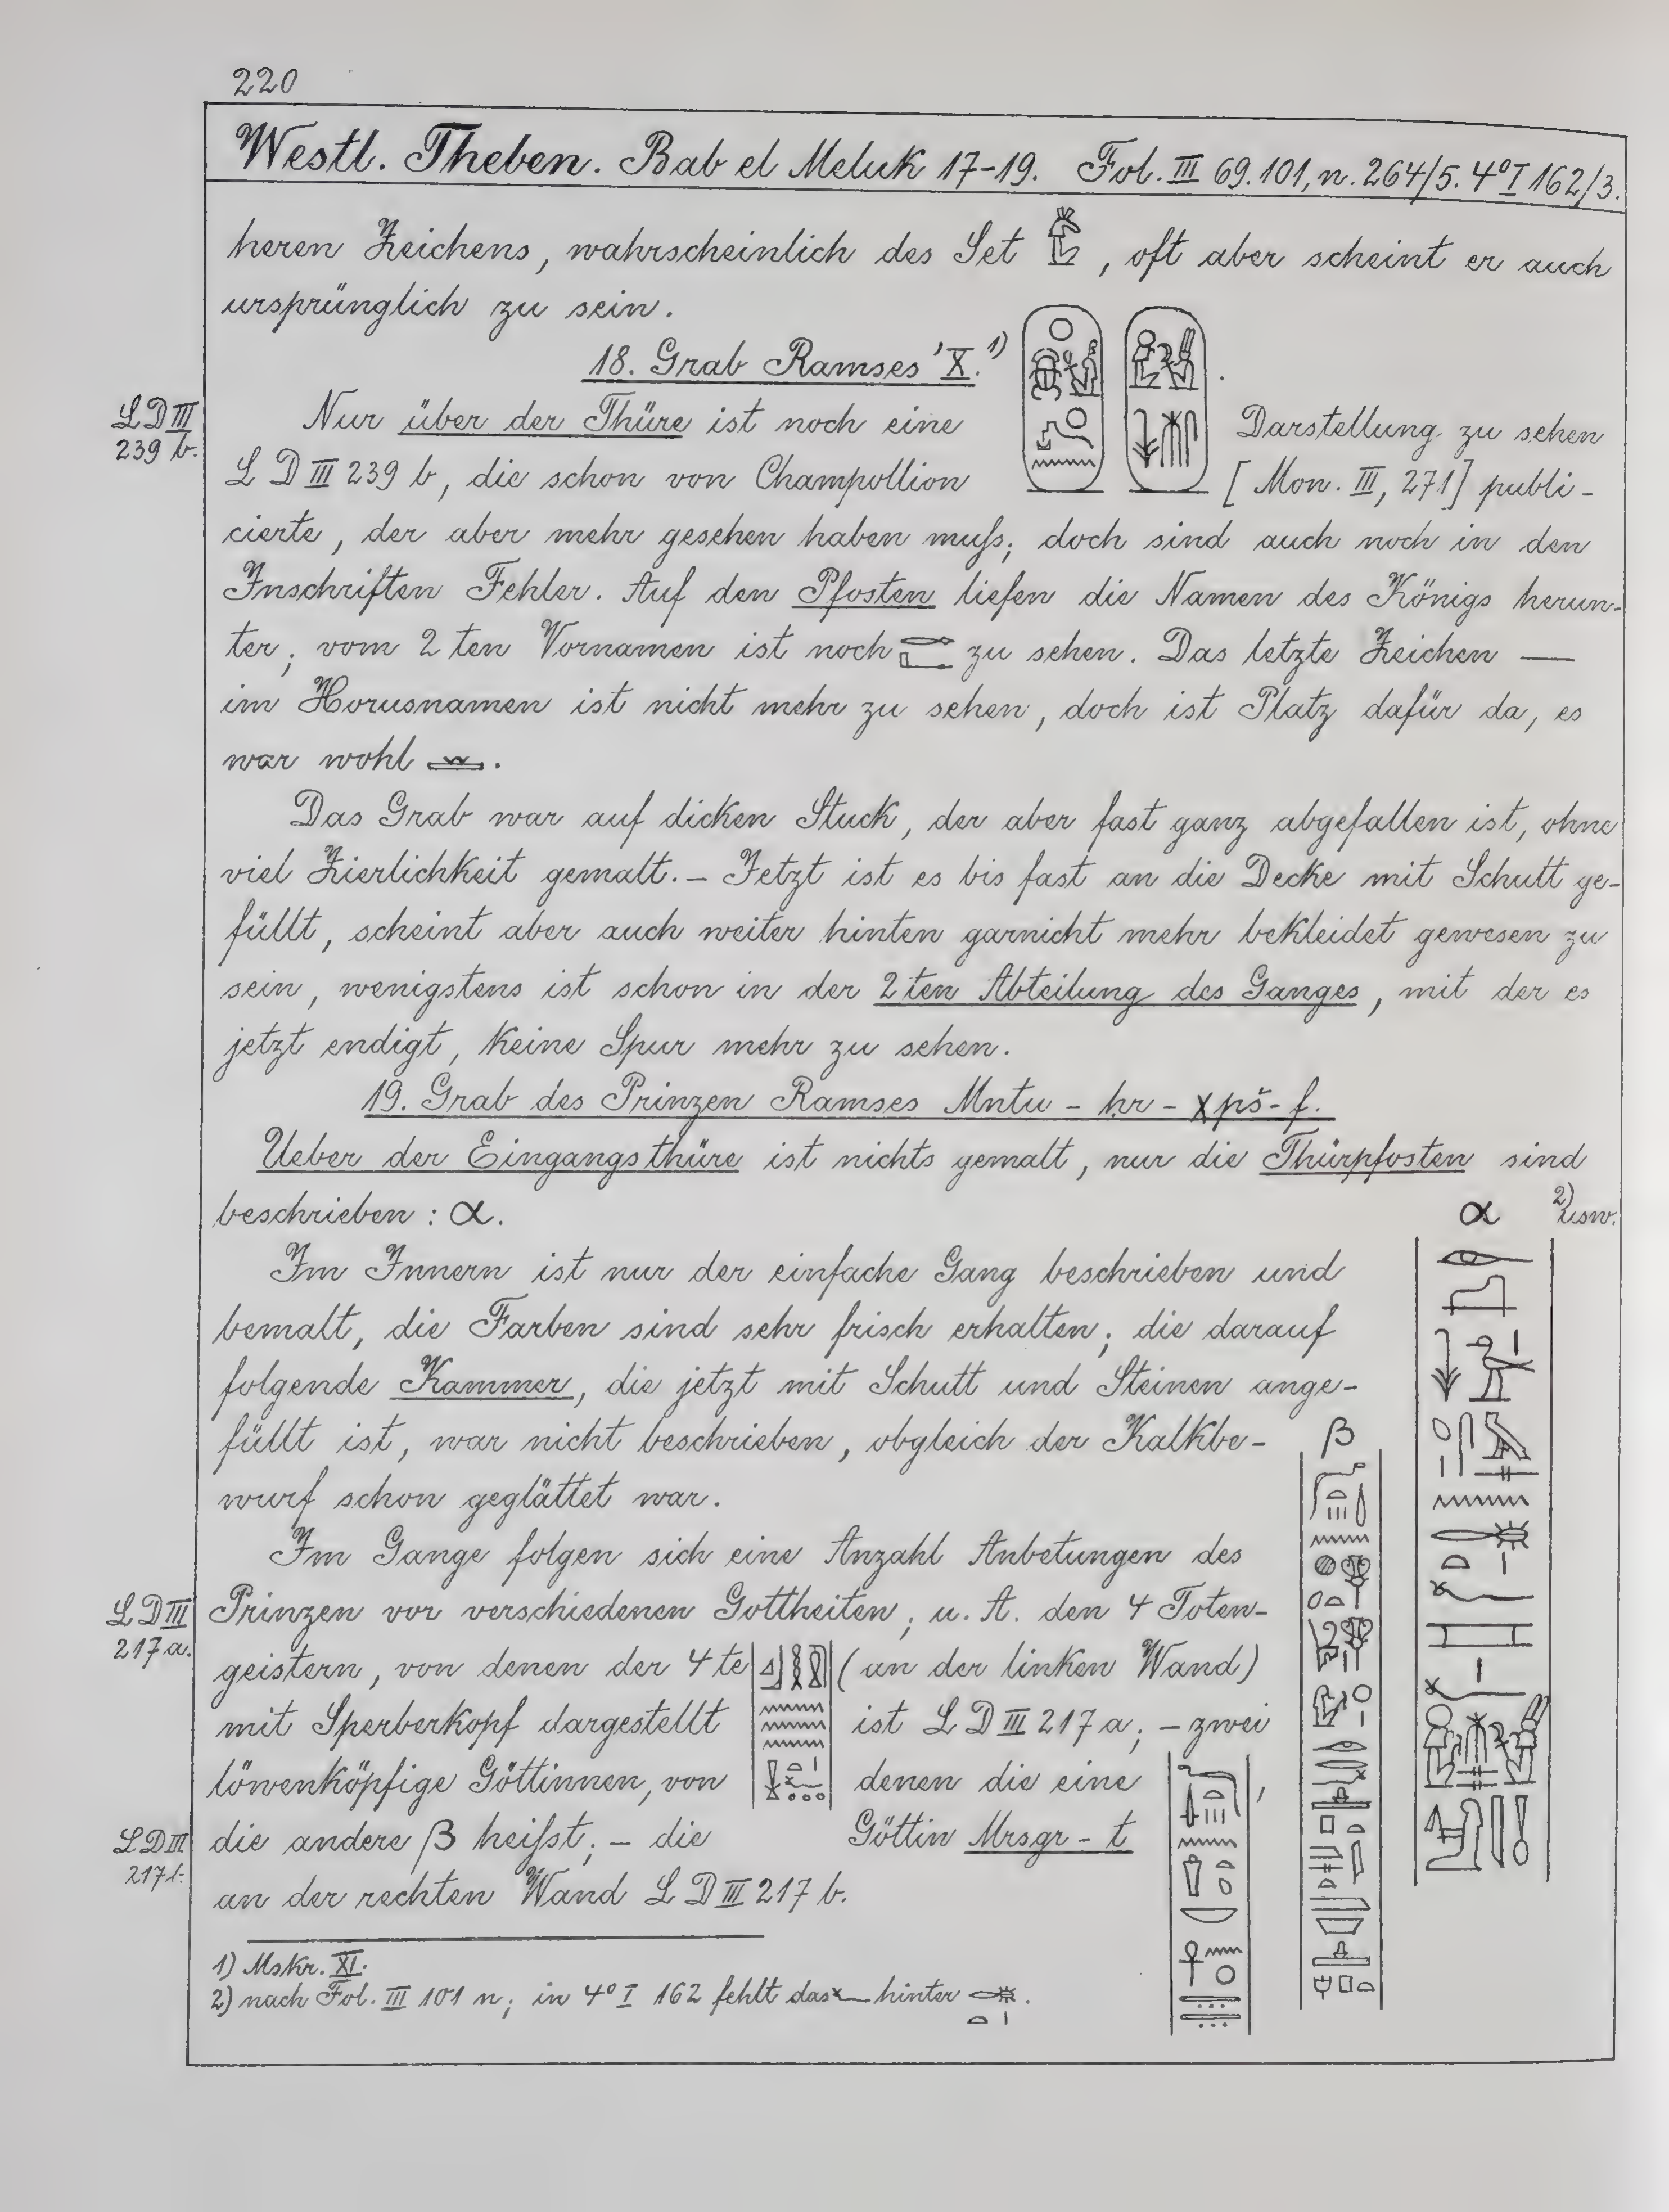 220
Westl. Theben. Bab el Meluk 17-19. Fol. III 69.101, n. 264/5. 4º I 162/3.
heren Zeichens, wahrscheinlich des Set , oft aber scheint er auch
ursprünglich zu sein.
18. Grab Ramses' X. 1)
LD III
239 b.
Nur über der Thüre ist noch eine Darstellung zu sehen
L D III 239 b, die schon von Champollion [Mon. III, 271] publi-
cierte, der aber mehr gesehen haben muß; doch sind auch noch in den
Inschriften Fehler. Auf den Pfosten liefen die Namen des Königs herun-
ter; vom 2 ten Vornamen ist noch zu sehen. Das letzte Zeichen —
im Horusnamen ist nicht mehr zu sehen, doch ist Platz dafür da, es
war wohl .
Das Grab war auf dicken Stuck, der aber fast ganz abgefallen ist, ohne
viel Zierlichkeit gemalt. – Jetzt ist es bis fast an die Decke mit Schutt ge-
füllt, scheint aber auch weiter hinten garnicht mehr bekleidet gewesen zu
sein, wenigstens ist schon in der 2 ten Abteilung des Ganges, mit der es
jetzt endigt, keine Spur mehr zu sehen.
19. Grab des Prinzen Ramses Mntu - ḥr - χpš - f.
Ueber der Eingangsthüre ist nichts gemalt, nur die Thürpfosten sind
beschrieben : α.
α 2) usw.
Im Innern ist nur der einfache Gang beschrieben und
bemalt, die Farben sind sehr frisch erhalten; die darauf
folgende Kammer, die jetzt mit Schutt und Steinen ange-
füllt ist, war nicht beschrieben, obgleich der Kalkbe-
wurf schon geglättet war.
β
Im Gange folgen sich eine Anzahl Anbetungen des
LD III
217 a.
Prinzen vor verschiedenen Gottheiten; u. A. den 4 Toten-
geistern, von denen der 4 te (an der linken Wand)
mit Sperberkopf dargestellt ist L D III 217 a; – zwei
löwenköpfige Göttinnen, von denen die eine ,
LD III
217 b.
die andere β heißt; – die Göttin Mrsgr - t
an der rechten Wand L D III 217 b.
1) Mskr. XI.
2) nach Fol. III 101 n; in 4º I 162 fehlt das hinter .